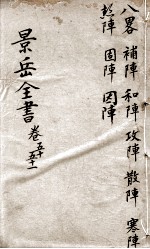 八畧 補陣 和陣 攻陣 散陣 寒陣
熱陣 固陣 因陣
景岳全書 卷五十 五十一